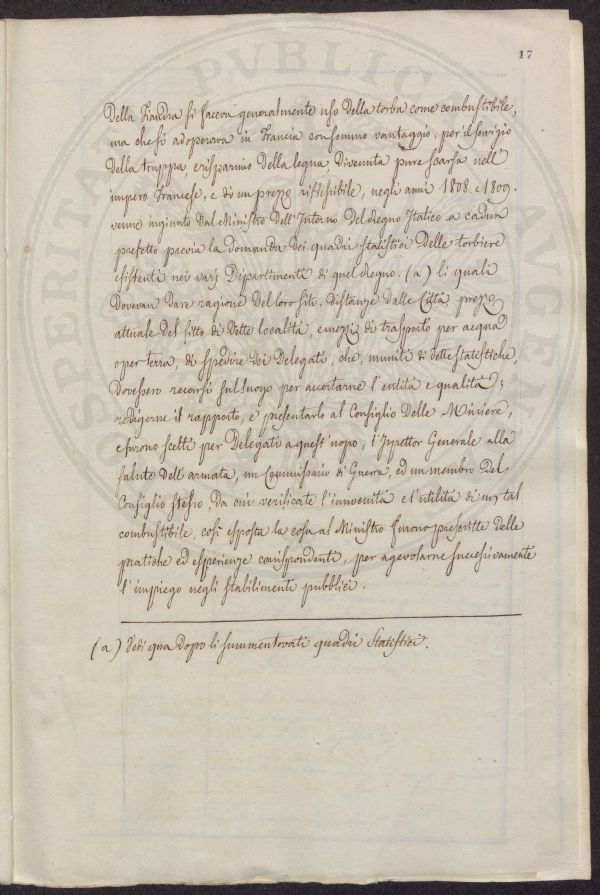 17
della Fiandra si faceva generalmente uso della torba come combustibile,
ma che si adoperava in Francia con sommo vantaggio, per il servigio
della truppa, e risparmio della legna, divenuta pure scarsa nell'
impero Francese, e di un prezzo riflessibile, negli anni 1808. e 1809.
venne ingiunto dal Ministro dell'Interno del Regno Italico a cadun
prefetto previa la domanda dei quadri statistici delle torbiere
esistenti nei varj Dipartimenti di quel Regno. (a) li quali
dovevan dare ragione del loro sito, distanze dalle Città prezzo
attuale del fitto di dette località, e mezzi di trasporto per acqua
o per terra, di spedire dei Delegati, che, muniti di dette statistiche,
dovessero recarsi sul luogo per accertarne l'entità e qualità,
redigerne il rapporto, e presentarlo al Consiglio delle Miniere,
e furono scelti per Delegati a quest'uopo, l'Ispettor Generale alla
salute dell'armata, un Commissario di Guerra, ed un membro del
Consiglio stesso, da cui verificate l'innocuità e l'utilità di un tal
combustibile, così esposta la cosa al Ministro furono prescritte delle
pratiche ed esperienze corrispondenti, per agevolarne successivamente
l'impiego negli stabilimenti pubblici.
(a) Vedi qua dopo li summentovati quadri Statistici.
PVBLICA